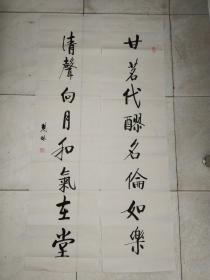 甘茗代醪名倫如樂
清聲向月和氣在堂